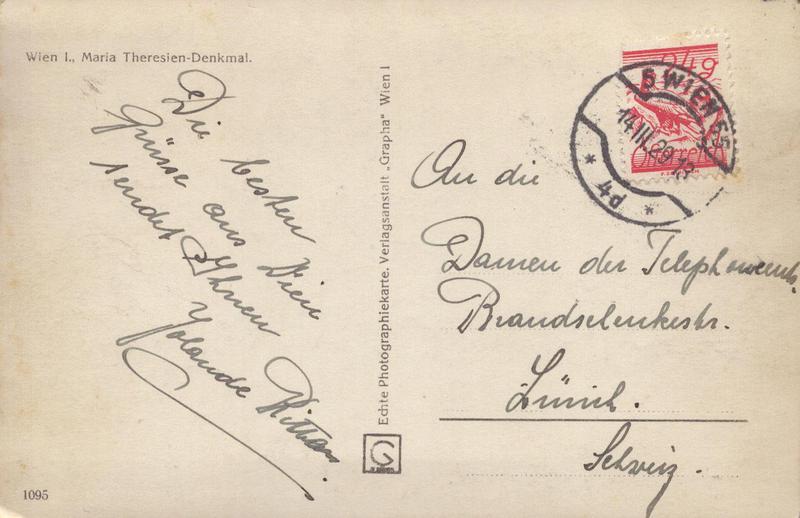 Wien I., Maria Theresien-Denkmal.
Die besten
Grüsse aus Wien
sendet Ihnen
Yolande
Echte Photographiekarte. Verlagsanstalt „Grapha“ Wien I
G
24g
Österreich
5 WIEN 5
14.III.29.13
* 4d *
An die
Damen der
Brandschenkestr.
Zürich.
Schweiz.
1095